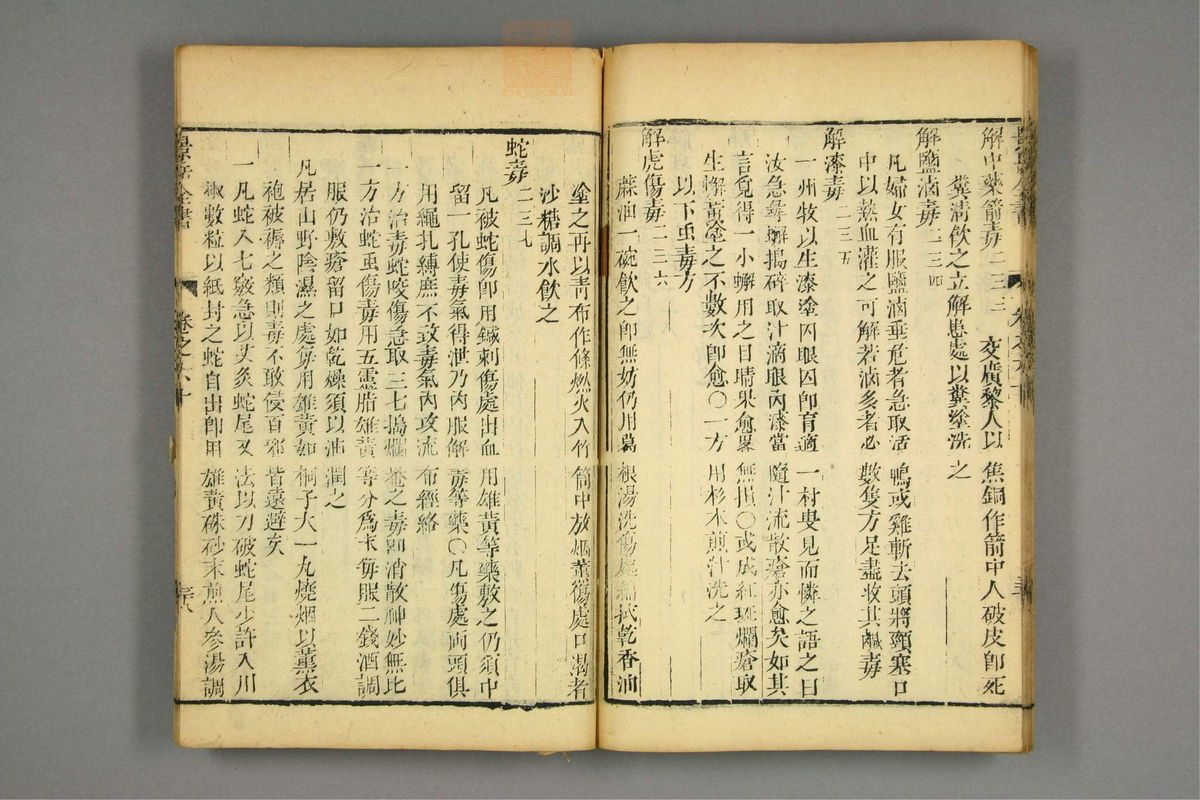 解中藥箭毒二三三　交廣黎人以焦銅作箭中人破皮卽死
糞淸飮之立解患處以糞塗洗之
解鹽滷毒二三四
凡婦女有服鹽滷垂危者急取活鴨或雞斬去頭將頸塞口
中以熱血灌之可解若滷多者必數隻方足盡收其鹹毒
解漆毒二三五
一州牧以生漆塗囚眼囚卽盲適一村叟見而憐之語之曰
汝急尋蠏搗碎取汁滴眼內漆當隨汁流散瘡亦愈矣如其
言覓得一小蠏用之目睛果愈畧無損〇或成紅斑爛瘡取
生蠏黃塗之不數次卽愈〇一方用杉木煎汁洗之
以下蟲毒方
解虎傷毒二三六
蔴油一碗飮之卽無妨仍用葛根湯洗傷處綿拭乾香油
塗之再以靑布作條燃火入竹筒中放烟薰傷處口渴者
沙糖調水飮之
蛇毒二三七
凡被蛇傷卽用鍼刺傷處出血用雄黃等藥敷之仍須中
留一孔使毒氣得泄乃內服解毒等藥〇凡傷處両頭俱
用繩扎縛庶不致毒氣內攻流布經絡
一方治毒蛇咬傷急取三七搗爛罨之毒卽消散神妙無比
一方治蛇虫傷毒用五靈脂雄黃等分爲末每服二錢酒調
服仍敷瘡留口如乾燥須以油潤之
凡居山野陰濕之處每用雄黃如桐子大一丸燒烟以薰衣
袍被褥之類則毒不敢侵百邪皆遠避矣
一凡蛇入七竅急以艾灸蛇尾又法以刀破蛇尾少許入川
椒數粒以紙封之蛇自出卽用雄黃硃砂末煎人參湯調